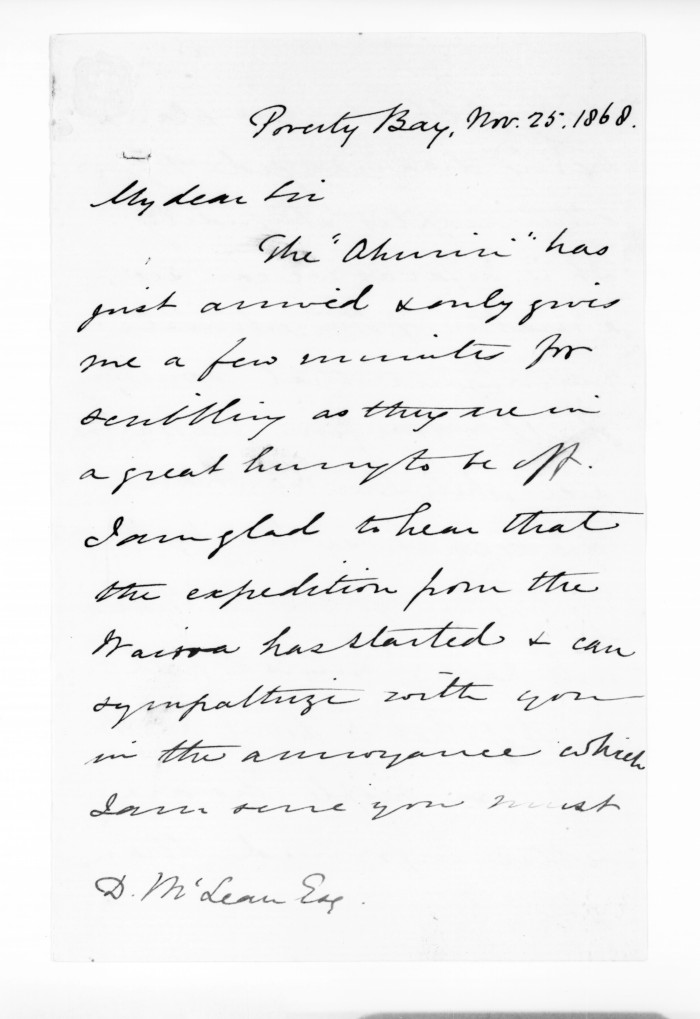 Poverty Bay, Nov. 25. 1868.
My dear Sir
The "Ahuriri" has
just arrived & only gives
me a few minutes for
scribbling as they are in
a great hurry to be off.
I am glad to hear that
the expedition from the
Wairoa has started & can
sympathize with you
in the annoyance which
I am sure you must
D. McLean Esq.